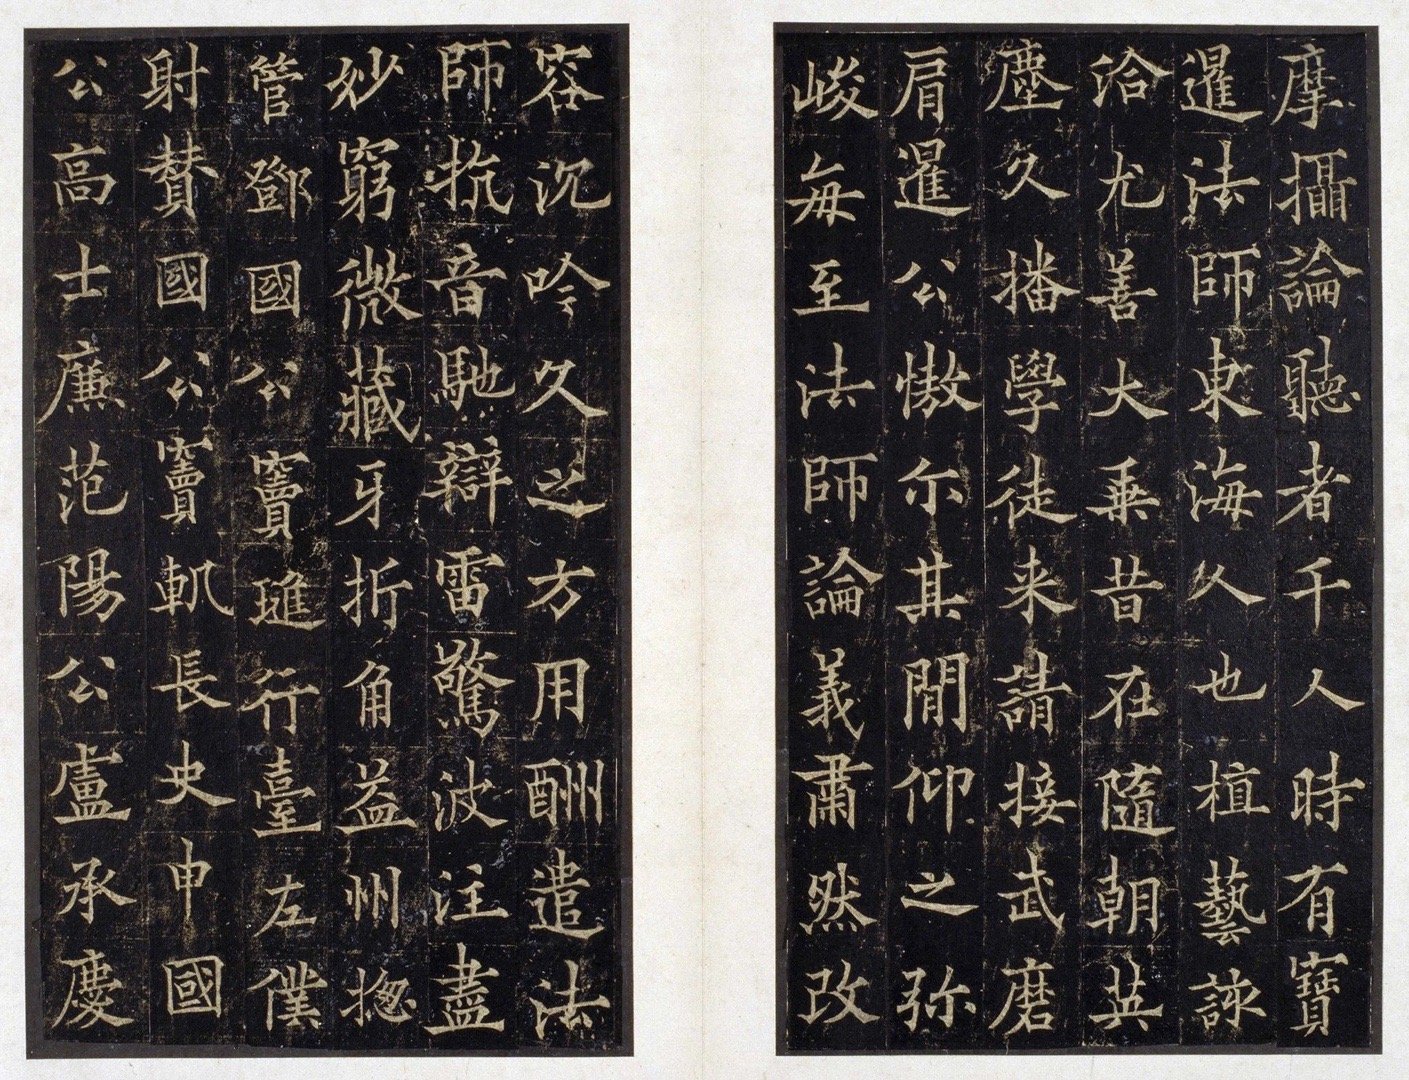 摩攝論聽者千人時有寶
暹法師東海人也植藝詠
洽尤善大乗昔在隨朝英
塵久播學徒来請接武磨
肩暹公憿尒其閒仰之弥
峻每至法師論義肅然改
容沉吟久之方用酬遣法
師抗音馳辯雷驚波注盡
妙窮微藏牙折角益州揔
管鄧國公竇璡行臺左僕
射賛國公竇軌長史申國
公高士廉范陽公盧承慶